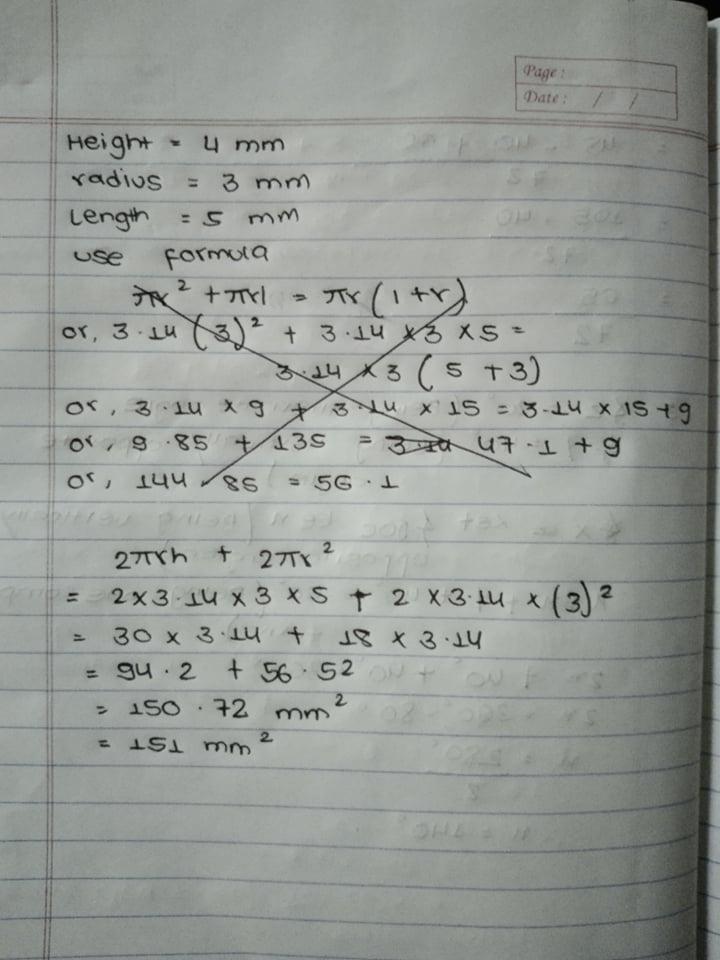 Page:
Date: / /
Height = 4 mm
radius = 3 mm
Length = 5 mm
use formula
πr² + πrl = πr (l + r)
or, 3.14 (3)² + 3.14 × 3 × 5 =
3.14 × 3 ( 5 + 3)
or, 3.14 × 9 + 3.14 × 15 = 3.14 × 15 + 9
or, 9.85 + 135 = 3.14 47.1 + 9
or, 144 85 = 56.1
2πrh + 2πr²
= 2×3.14 × 3 × 5 + 2 × 3.14 × (3)²
= 30 × 3.14 + 18 × 3.14
= 94.2 + 56.52
= 150.72 mm²
= 151 mm²